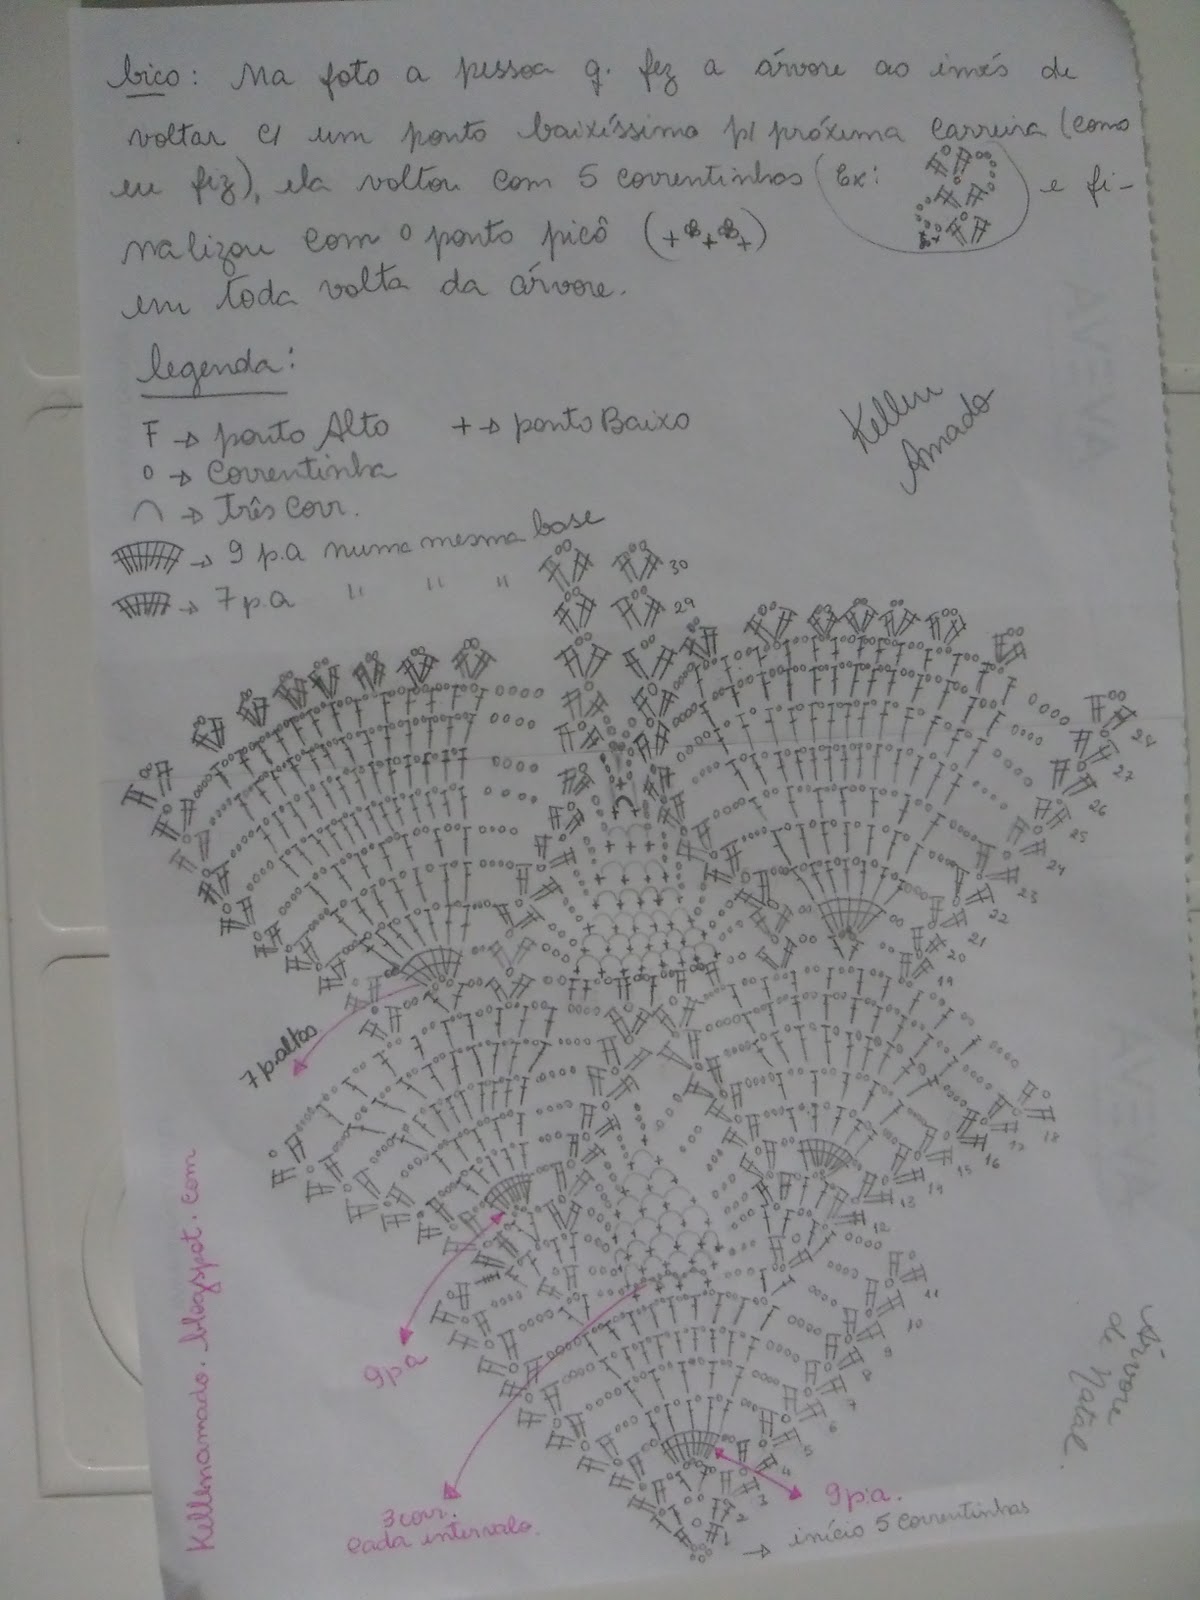 bico: Na foto a pessoa q. fez a árvore ao invés de
voltar c/ um ponto baixíssimo p/ próxima carreira (como
eu fiz), ela voltou com 5 correntinhas (Ex: e fi-
nalizou com o ponto picô (+ + +)
em toda volta da árvore.
legenda:
F → ponto Alto + → ponto Baixo
o → Correntinha
⌒ → Três Corr.
→ 9 p.a numa mesma base
→ 7 p.a " " "
Kellen
Amado
30
29
28
27
26
25
24
23
22
21
20
19
7 p.altos
18
17
16
15
14
13
12
11
10
9
8
7
6
5
4
3
2
1
9pa
3 corr.
cada intervalo.
9p.a.
→ início 5 correntinhas
Árvore
de Natal.
Kellenamado.blogspot.com